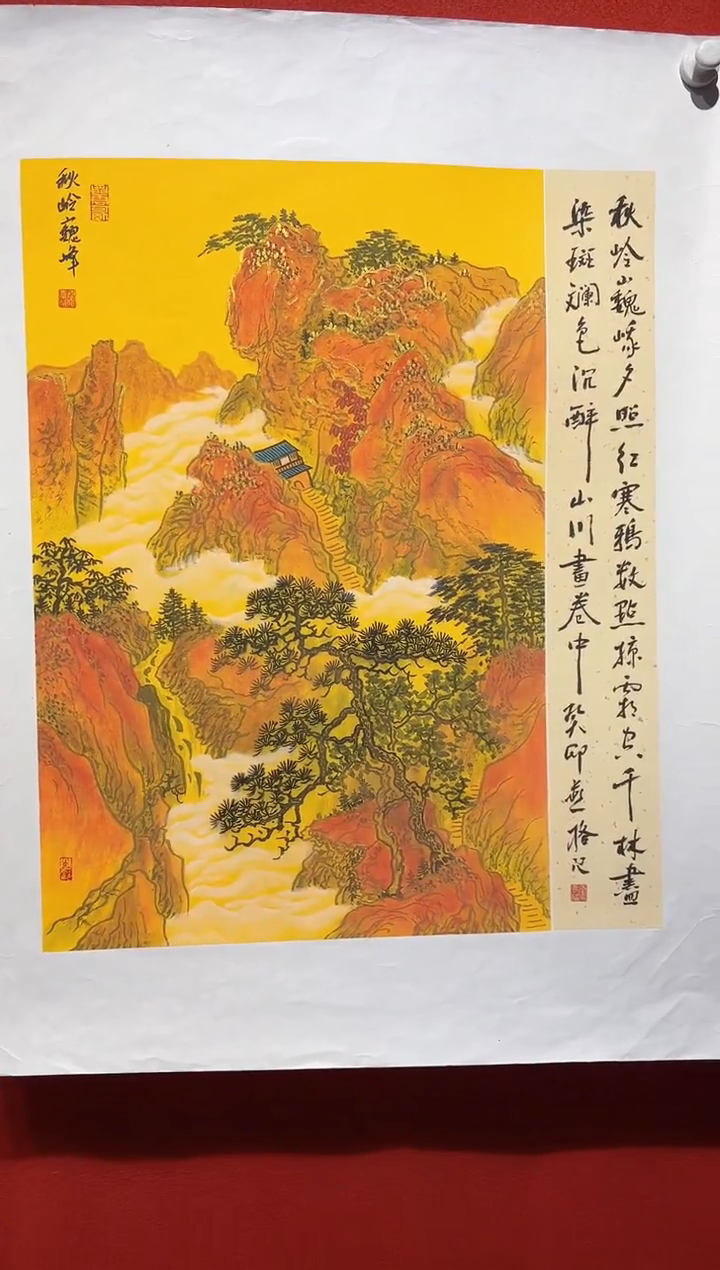 秋岭巍峨夕照红寒鸦数點掠霜空千林盡
染斑斓色沉醉山川畫卷中癸卯格记
秋岭巍峰